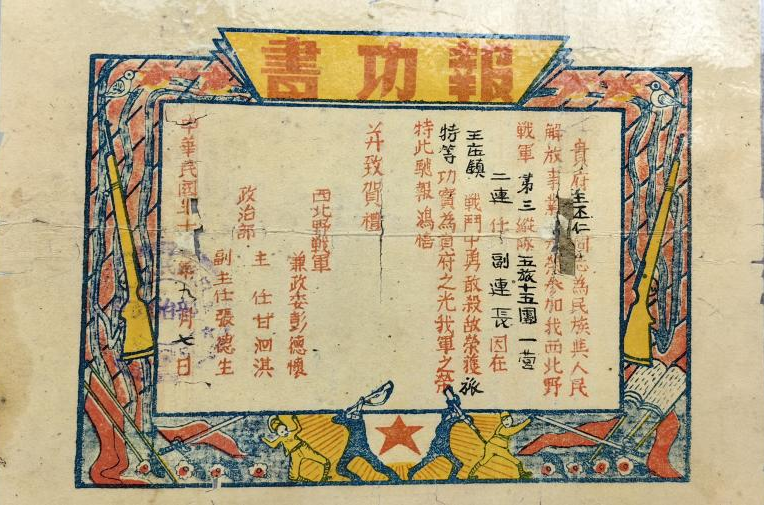 報功書
貴府王丕仁同志為民族與人民
解放事業参加我西北野
戰軍 第三縱隊五旅十五團一营
二連 任副連長因在
王庄鎮 戰鬥中勇敢殺敵榮獲旅
特等功實為貴府之光我軍之榮
特此馳報鴻禧
并致賀禮
西北野戰軍
兼政委彭德懷
政治部 主任甘泗淇
副主任張德生
中華民國三十年九月七日